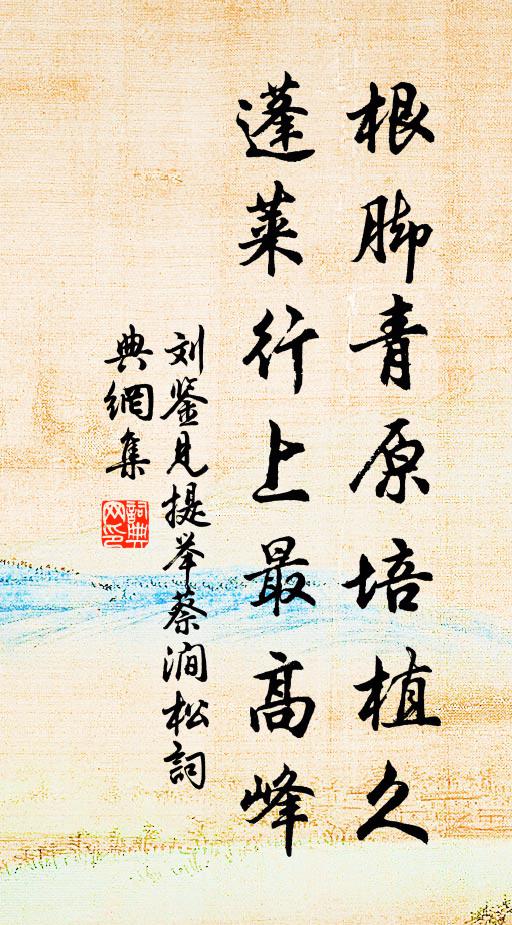 根脚青原培植久
蓬莱行上最高峰
刘鉴见提举蔡涧松詞
典網集
詞典网印